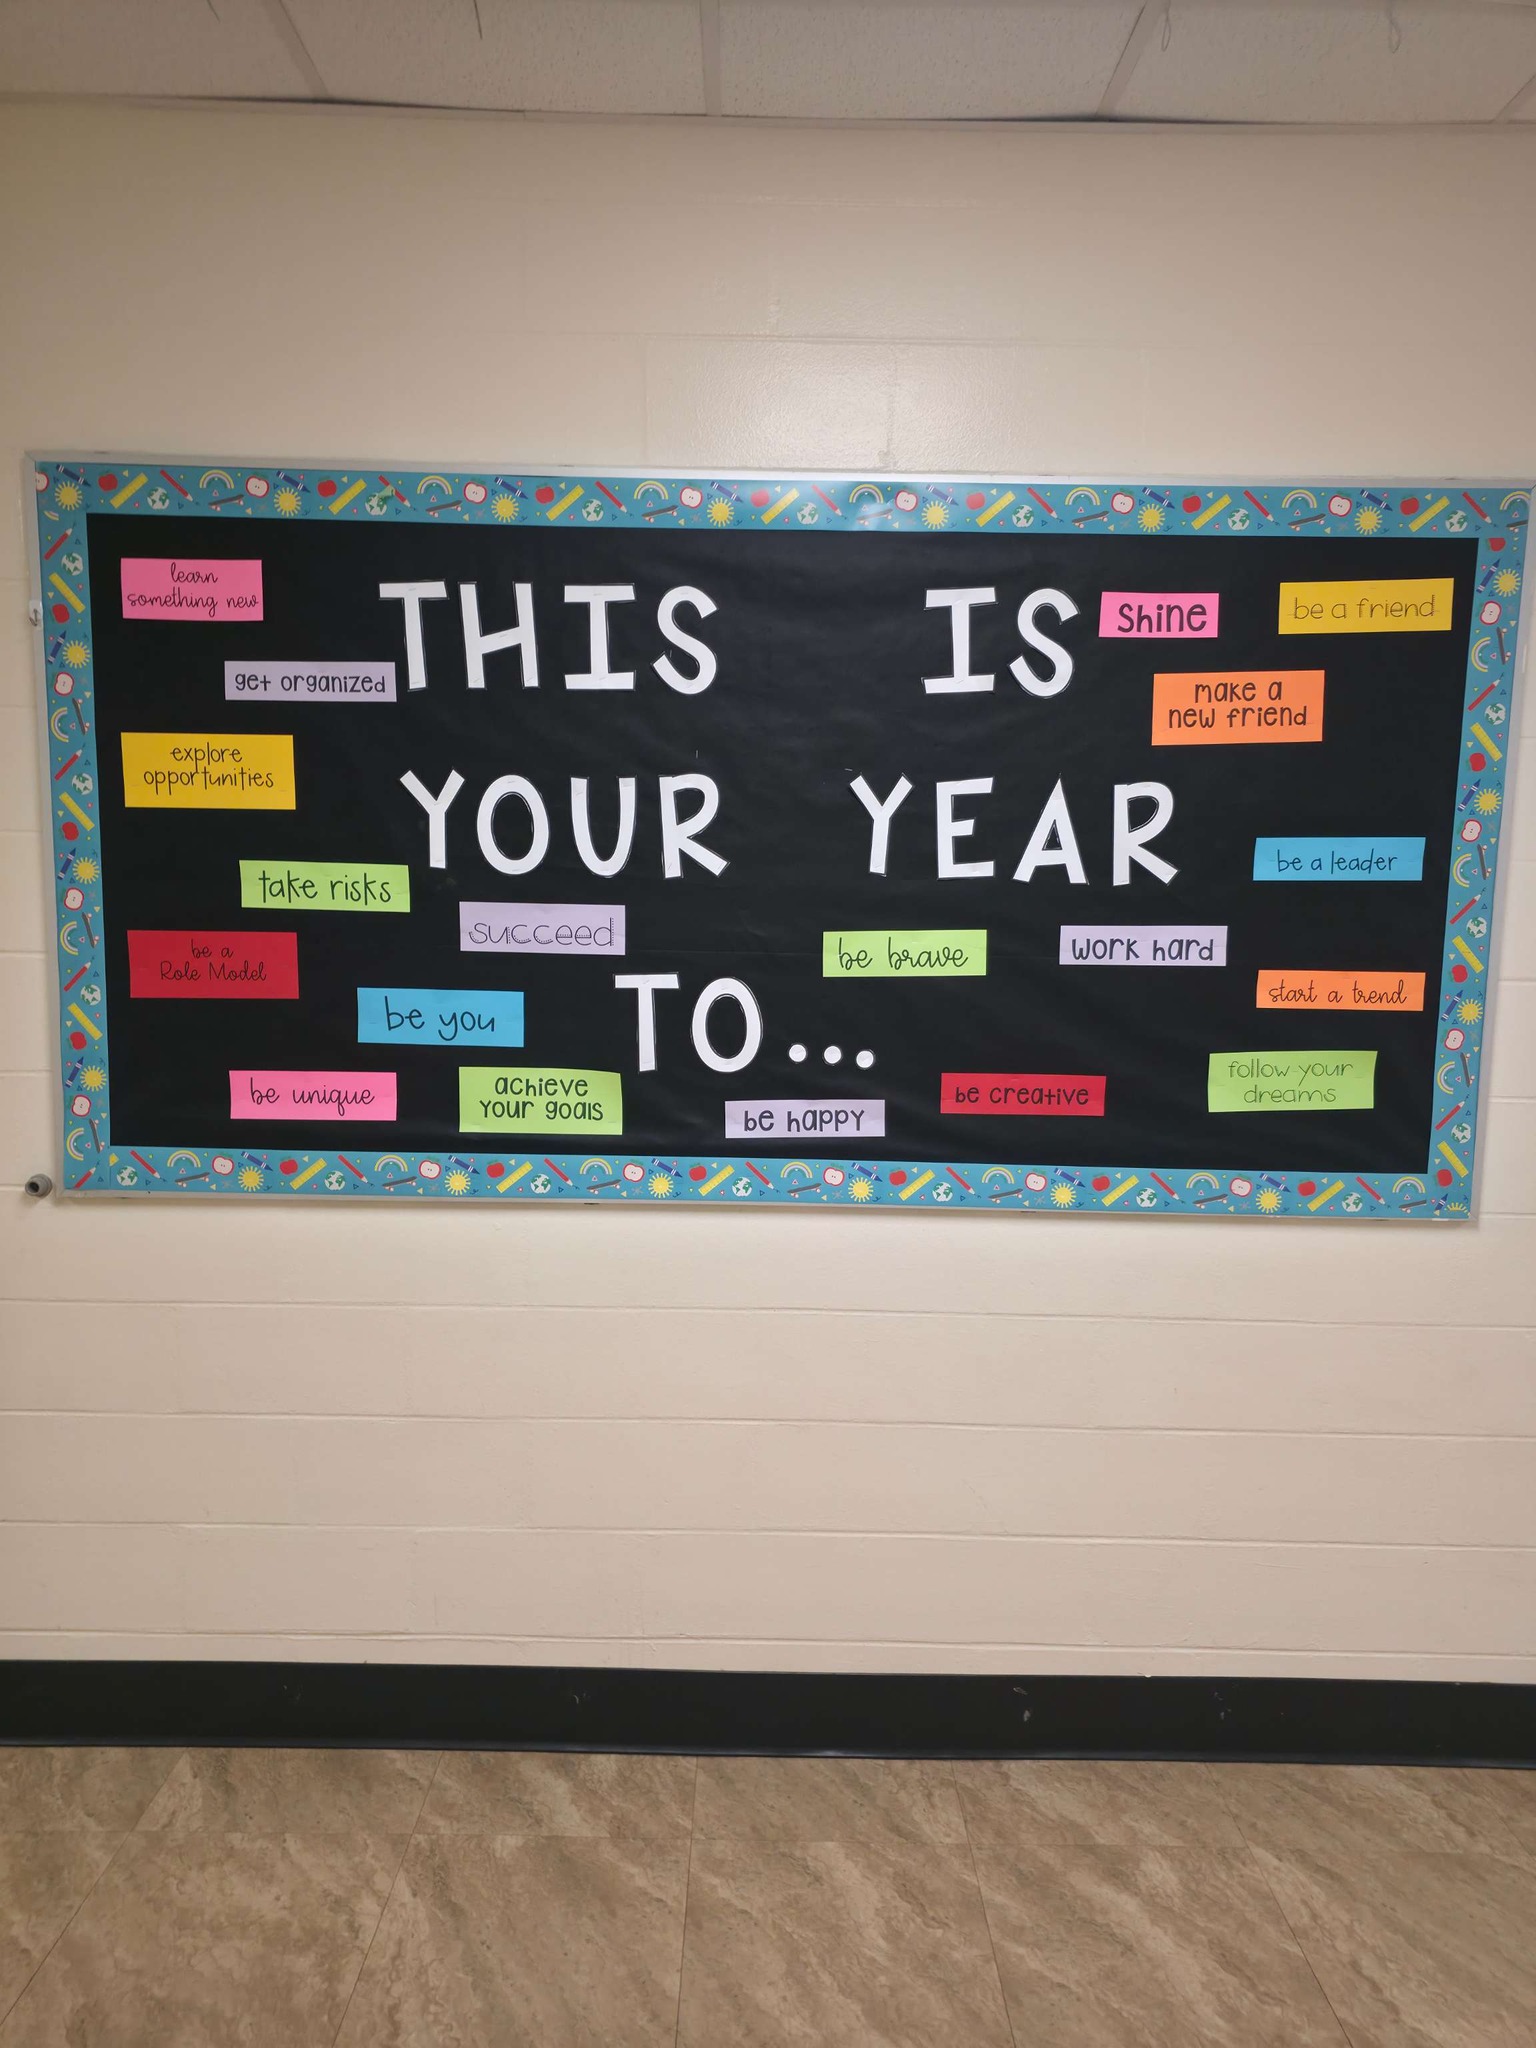 THIS IS
YOUR YEAR
TO...
learn
something new
get organized
explore
opportunities
take risks
succeed
be a
Role Model
be you
be unique
achieve
your goals
be happy
Shine
be a friend
make a
new friend
be a leader
be brave
work hard
start a trend
be creative
follow your
dreams